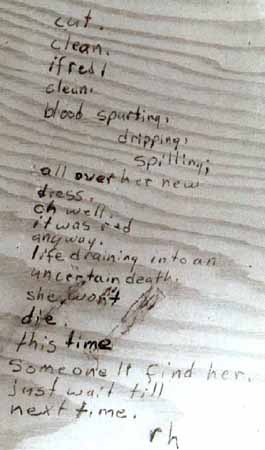 cut.
clean.
if red,
clean.
blood spurting,
dripping,
spilling;
all over her new
dress.
oh well.
it was red
anyway.
life draining into an
uncertain death.
she won't
die.
this time
someone'll find her.
just wait till
next time.
rh